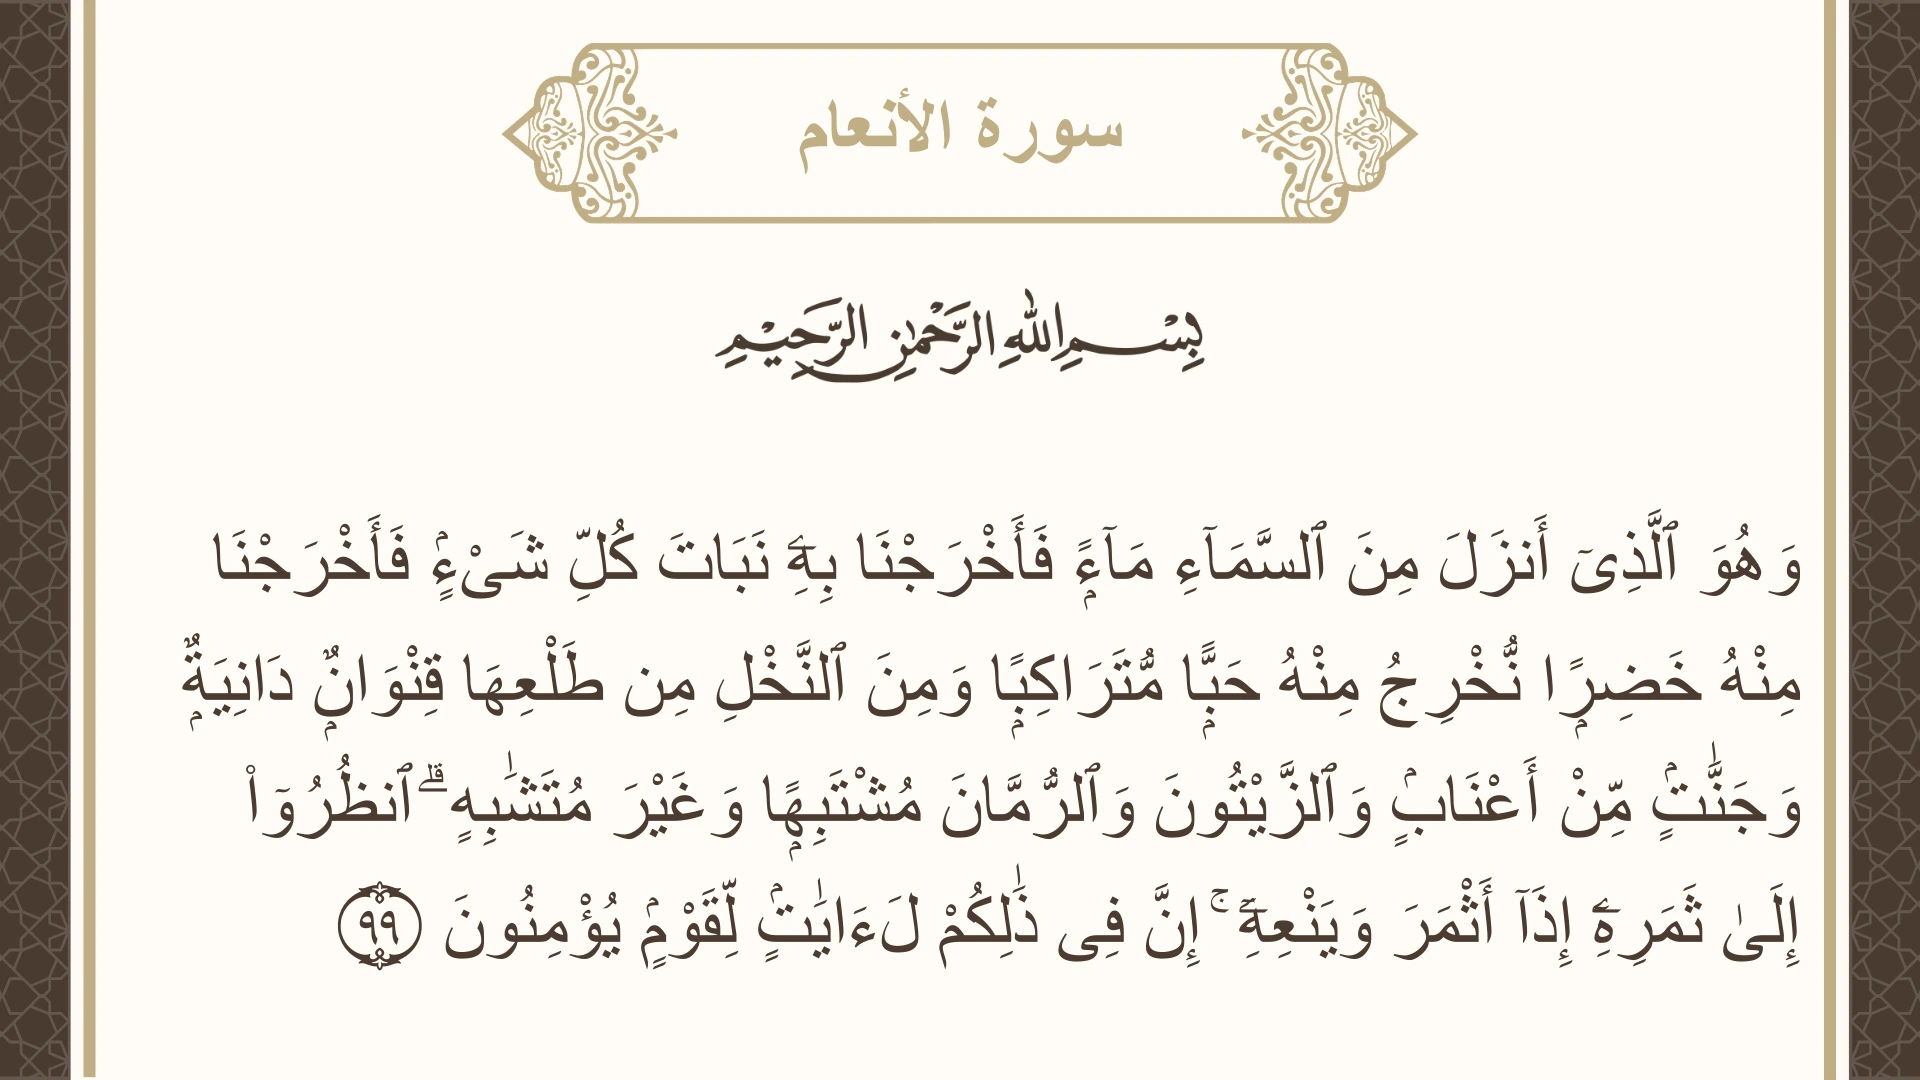 سورة الأنعام
بِسْمِ اللهِ الرَّحْمٰنِ الرَّحِيْمِ
وَهُوَ ٱلَّذِىٓ أَنزَلَ مِنَ ٱلسَّمَآءِ مَآءًۭ فَأَخْرَجْنَا بِهِۦ نَبَاتَ كُلِّ شَىْءٍۢ فَأَخْرَجْنَا
مِنْهُ خَضِرًۭا نُّخْرِجُ مِنْهُ حَبًّۭا مُّتَرَاكِبًۭا وَمِنَ ٱلنَّخْلِ مِن طَلْعِهَا قِنْوَانٌۭ دَانِيَةٌۭ
وَجَنَّـٰتٍۢ مِّنْ أَعْنَابٍۢ وَٱلزَّيْتُونَ وَٱلرُّمَّانَ مُشْتَبِهًۭا وَغَيْرَ مُتَشَـٰبِهٍ ۗ ٱنظُرُوٓا۟
إِلَىٰ ثَمَرِهِۦٓ إِذَآ أَثْمَرَ وَيَنْعِهِۦٓ ۚ إِنَّ فِى ذَٰلِكُمْ لَـَٔايَـٰتٍۢ لِّقَوْمٍۢ يُؤْمِنُونَ ٩٩